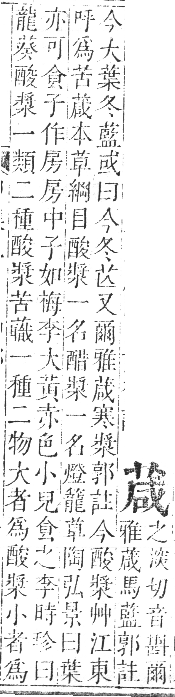 葴
之淡切音斟爾
雅葴馬藍郭註
今大葉冬藍或曰今冬𦬊又爾雅葴寒漿郭註今酸漿艸江東
呼爲苦葴本草綱目酸漿一名醋漿一名燈籠草陶弘景曰葉
亦可食子作房房中子如梅李大黃赤色小兒食之李時珍曰
龍葵酸漿一類二種酸漿苦蘵一種二物大者爲酸漿小者爲